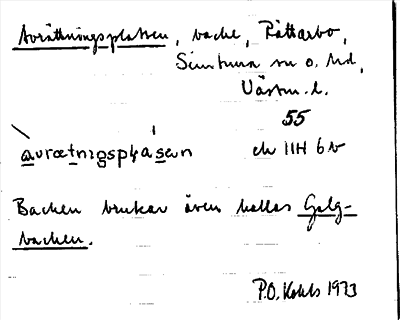 Avrättningsplatsen, backe, Rättarbo,
Simtuna sn o. hd,
Västm. l.
55
avrætnıŋspɬasən ek 11H 6 b
Backen brukar även kallas Galg-
backen.
P.O. Kohls 1973